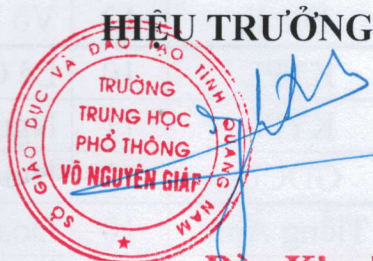 HIỆU TRƯỞNG
SỞ GIÁO DỤC VÀ ĐÀO TẠO TỈNH QUẢNG NAM
TRƯỜNG
TRUNG HỌC
PHỔ THÔNG
VÕ NGUYÊN GIÁP